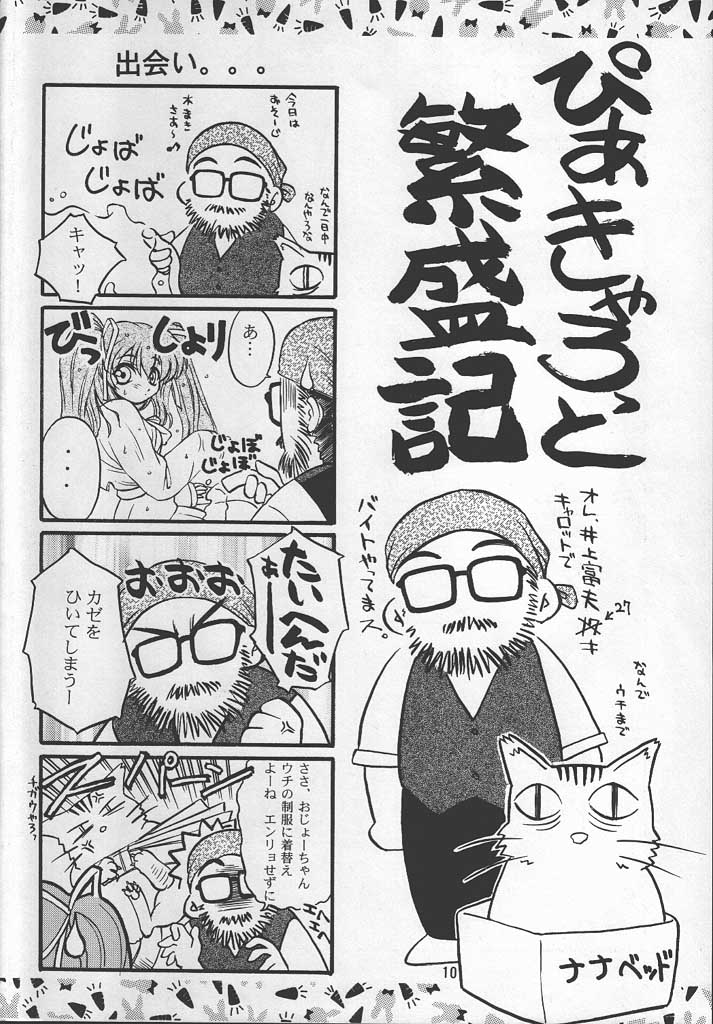 ぴあきゃろっと
繁盛記
オレ、井上富夫
27才
キャロットで
バイトやってまス。
なんで
ウチまで
ナナベッド
10
出会い。。。
今日は
あそーじ
水まき
さあ〜♪
じょば
じょば
なんで一日中
なんやろな
キャッ！
あ…
じょり
びっ
じょぼ
じょぼ
・・・
たいへんだ
あーー
おおおお
カゼを
ひいてしまうー
ささ、おじょーちゃん
ウチの制服に着替え
よーね エンリョせずに
スパーン
エヘ
エヘ
チガウやろ